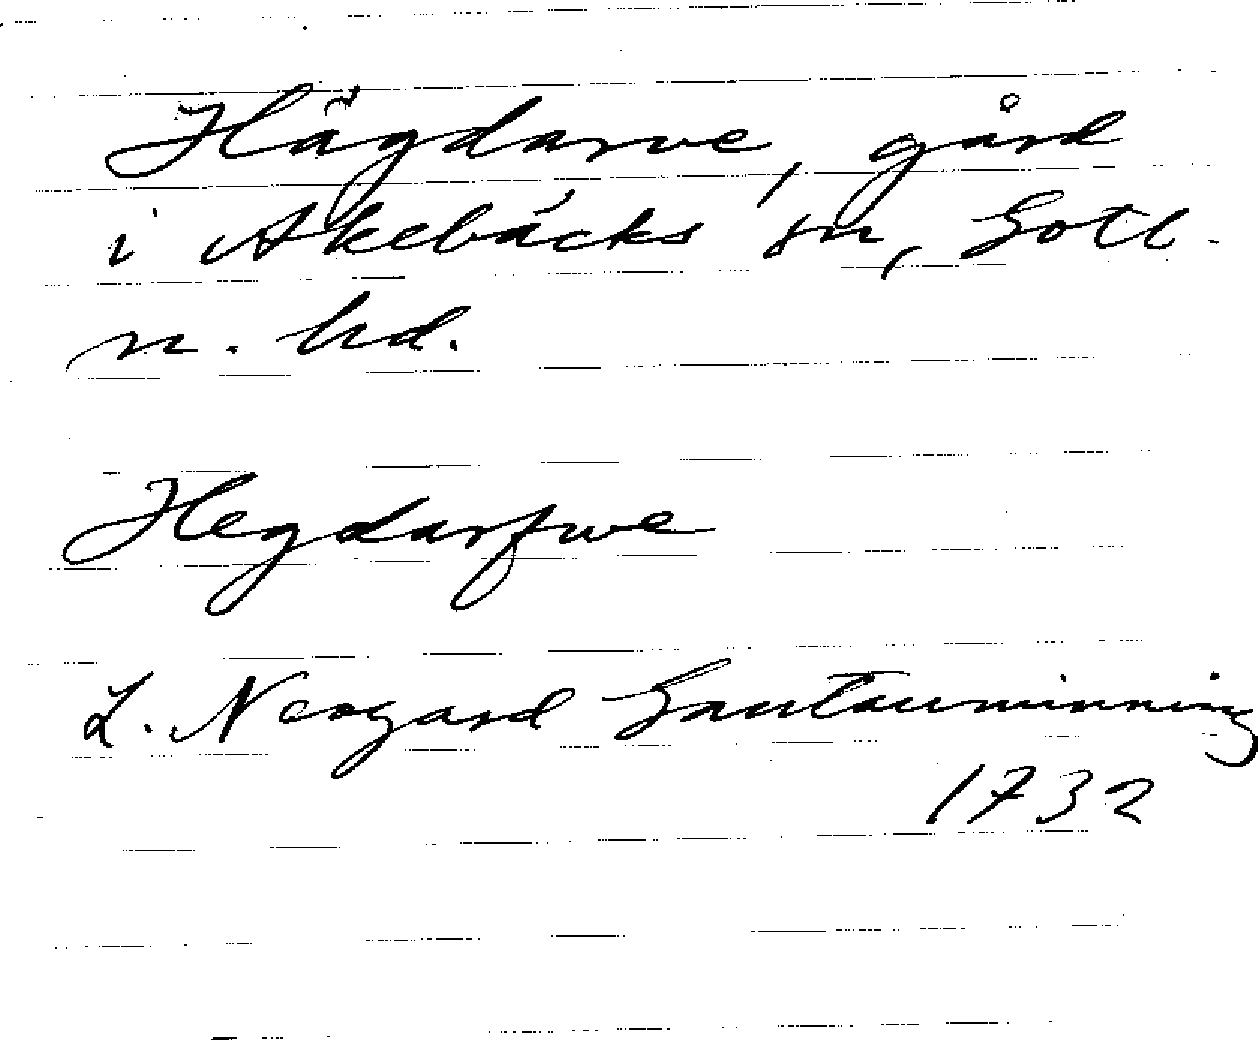 Hägdarve, gård
i Akebäcks sn, Gotl.
n. hd.
Hegdarfwe
L. Neogard Gautauminning
1732